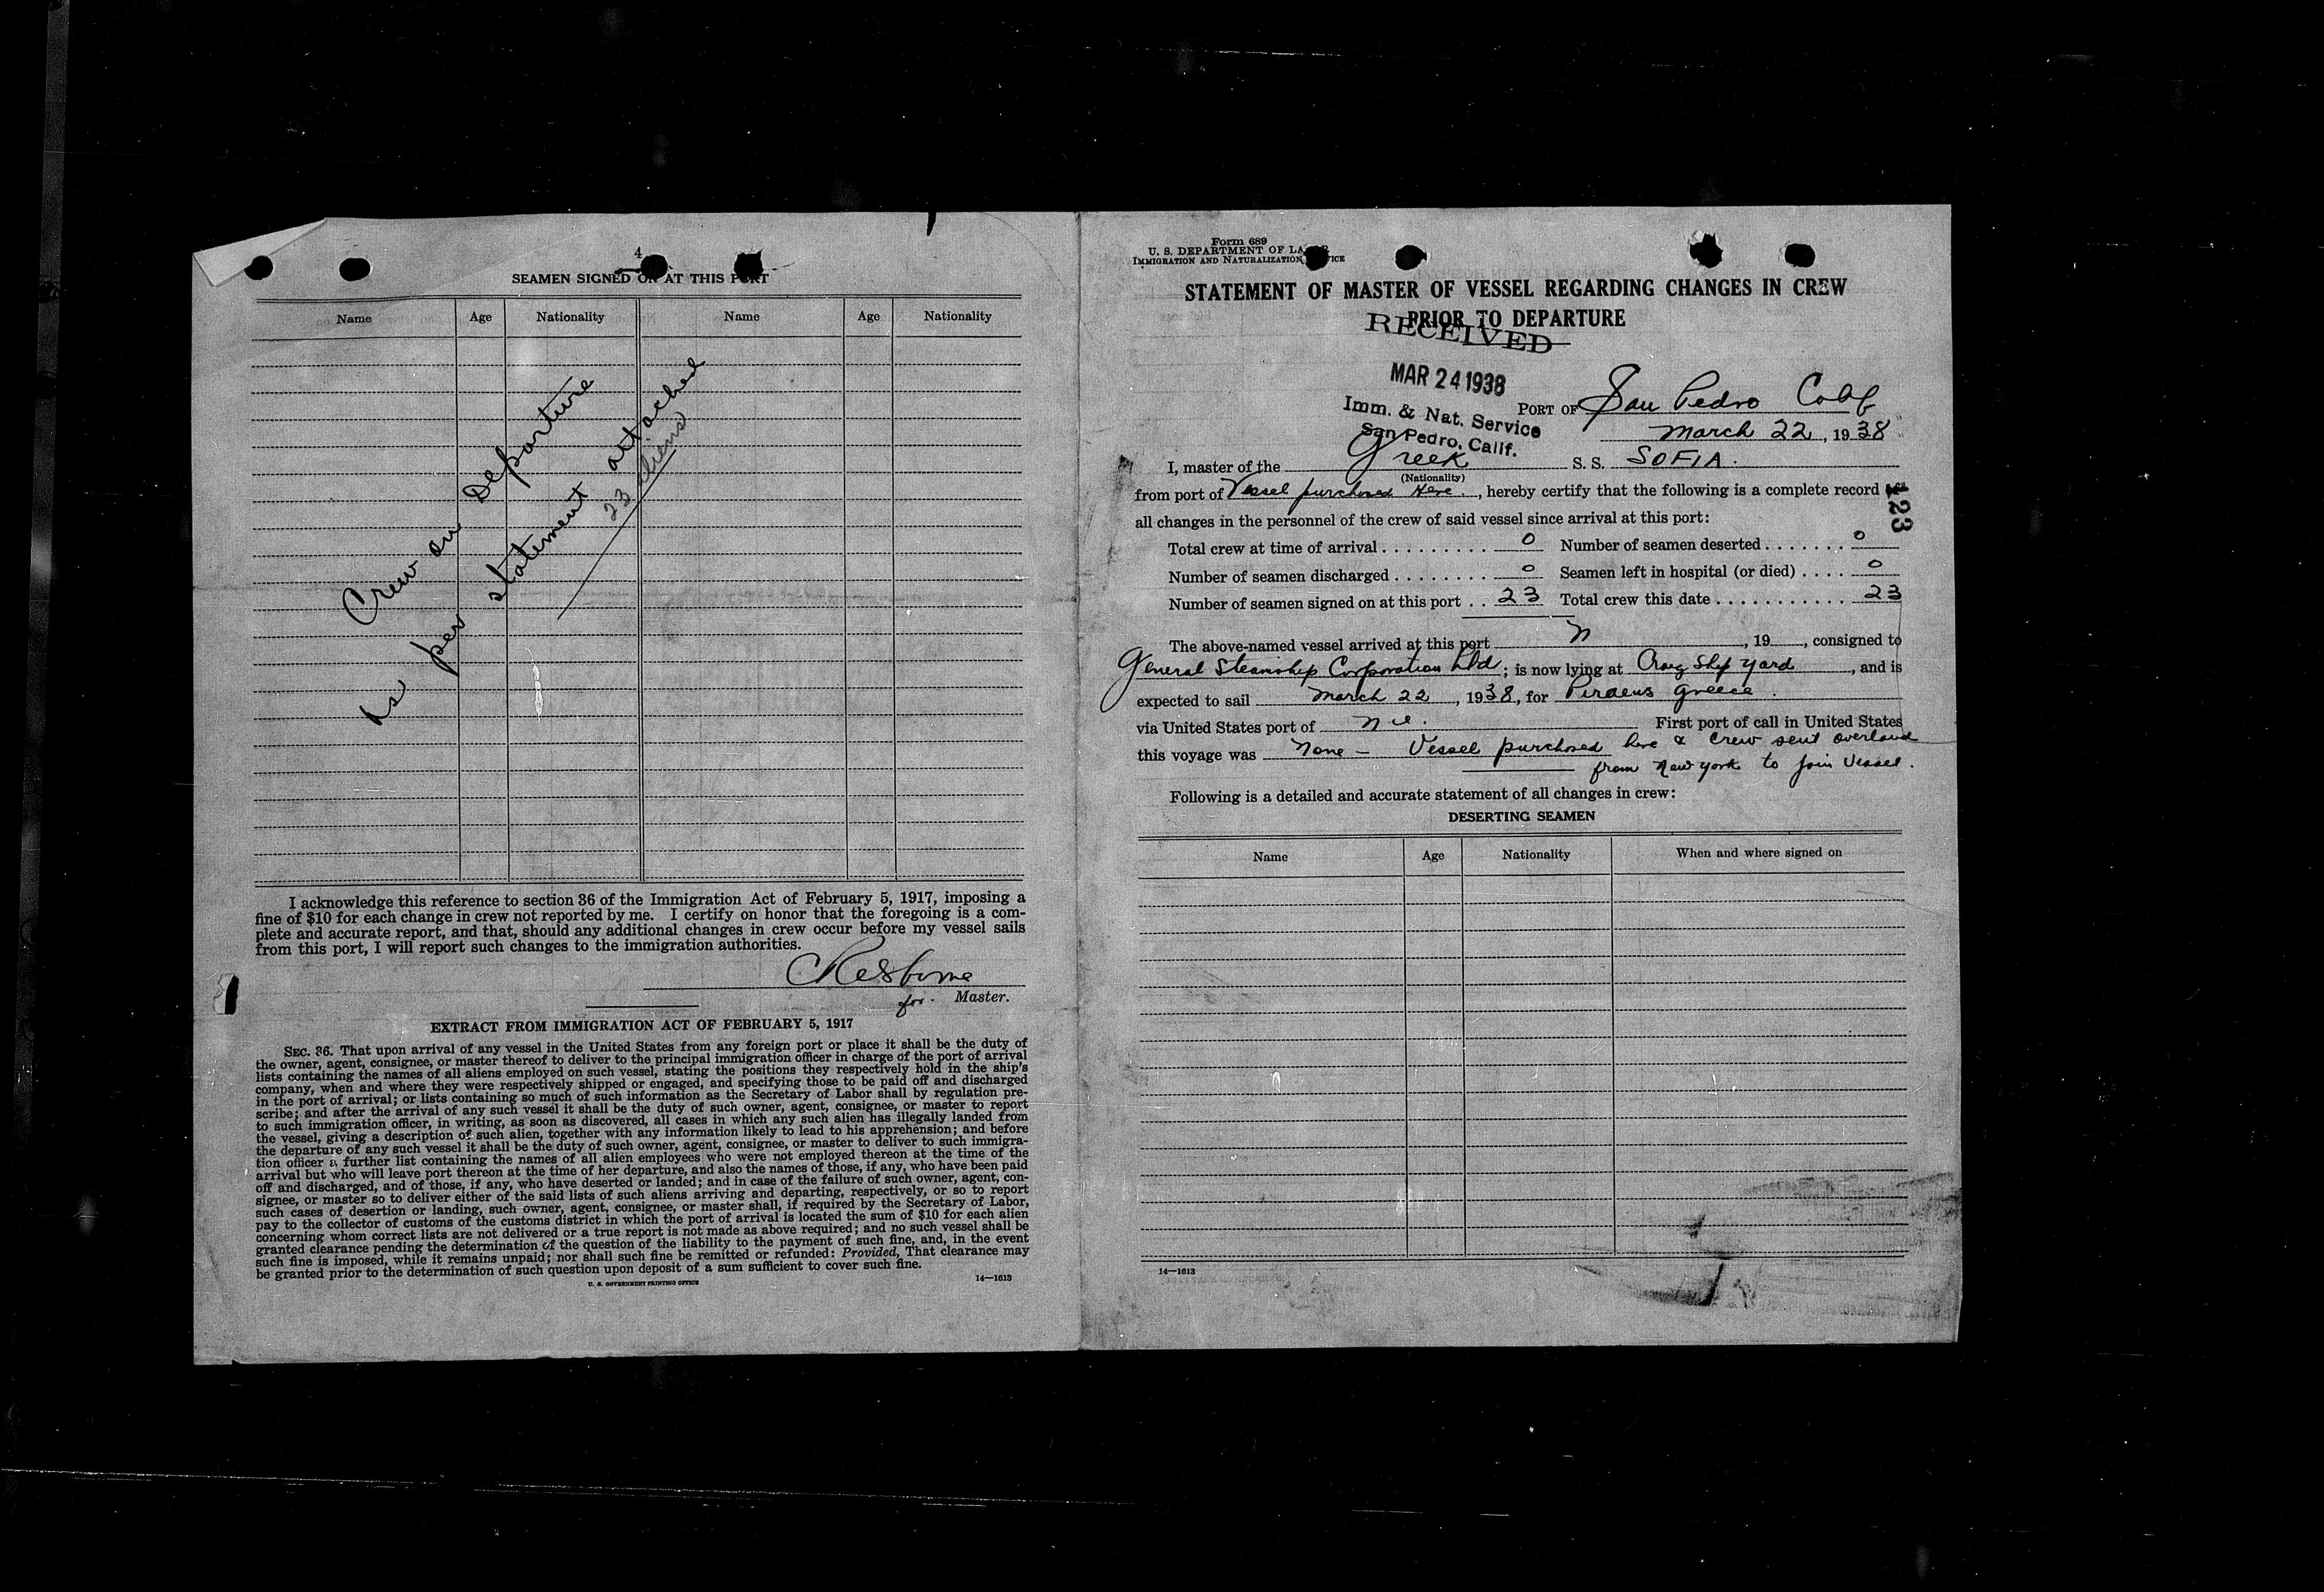 4
SEAMEN SIGNED ON AT THIS PORT
Name Age Nationality Name Age Nationality
Crew on Departure
as per statement attached
23 aliens
I acknowledge this reference to section 36 of the Immigration Act of February 5, 1917, imposing a
fine of $10 for each change in crew not reported by me. I certify on honor that the foregoing is a com-
plete and accurate report, and that, should any additional changes in crew occur before my vessel sails
from this port, I will report such changes to the immigration authorities.
for Master.
EXTRACT FROM IMMIGRATION ACT OF FEBRUARY 5, 1917
SEC. 36. That upon arrival of any vessel in the United States from any foreign port or place it shall be the duty of
the owner, agent, consignee, or master thereof to deliver to the principal immigration officer in charge of the port of arrival
lists containing the names of all aliens employed on such vessel, stating the positions they respectively hold in the ship's
company, when and where they were respectively shipped or engaged, and specifying those to be paid off and discharged
in the port of arrival; or lists containing so much of such information as the Secretary of Labor shall by regulation pre-
scribe; and after the arrival of any such vessel it shall be the duty of such owner, agent, consignee, or master to report
to such immigration officer, in writing, as soon as discovered, all cases in which any such alien has illegally landed from
the vessel, giving a description of such alien, together with any information likely to lead to his apprehension; and before
the departure of any such vessel it shall be the duty of such owner, agent, consignee, or master to deliver to such immigra-
tion officer a further list containing the names of all alien employees who were not employed thereon at the time of the
arrival but who will leave port thereon at the time of her departure, and also the names of those, if any, who have been paid
off and discharged, and of those, if any, who have deserted or landed; and in case of the failure of such owner, agent, con-
signee, or master so to deliver either of the said lists of such aliens arriving and departing, respectively, or so to report
such cases of desertion or landing, such owner, agent, consignee, or master shall, if required by the Secretary of Labor,
pay to the collector of customs of the customs district in which the port of arrival is located the sum of $10 for each alien
concerning whom correct lists are not delivered or a true report is not made as above required; and no such vessel shall be
granted clearance pending the determination of the question of the liability to the payment of such fine, and, in the event
such fine is imposed, while it remains unpaid; nor shall such fine be remitted or refunded: Provided, That clearance may
be granted prior to the determination of such question upon deposit of a sum sufficient to cover such fine.
U. S. GOVERNMENT PRINTING OFFICE 14—1613
Form 689
U. S. DEPARTMENT OF LABOR
IMMIGRATION AND NATURALIZATION SERVICE
STATEMENT OF MASTER OF VESSEL REGARDING CHANGES IN CREW
PRIOR TO DEPARTURE
RECEIVED
MAR 24 1938
Imm. & Nat. Service
San Pedro, Calif.
PORT OF San Pedro Calif
March 22, 1938
I, master of the Greek S. S. SOFIA.
(Nationality)
from port of Vessel purchased Here, hereby certify that the following is a complete record
123
all changes in the personnel of the crew of said vessel since arrival at this port:
Total crew at time of arrival 0 Number of seamen deserted 0
Number of seamen discharged 0 Seamen left in hospital (or died) 0
Number of seamen signed on at this port 23 Total crew this date 23
The above-named vessel arrived at this port , 19 , consigned to
General Steamship Corporation Ltd; is now lying at Craig Ship Yard, and is
expected to sail March 22, 1938, for Piraeus Greece.
via United States port of First port of call in United States
this voyage was None — Vessel purchased here & Crew sent overland
from New York to join Vessel.
Following is a detailed and accurate statement of all changes in crew:
DESERTING SEAMEN
Name Age Nationality When and where signed on
14—1613